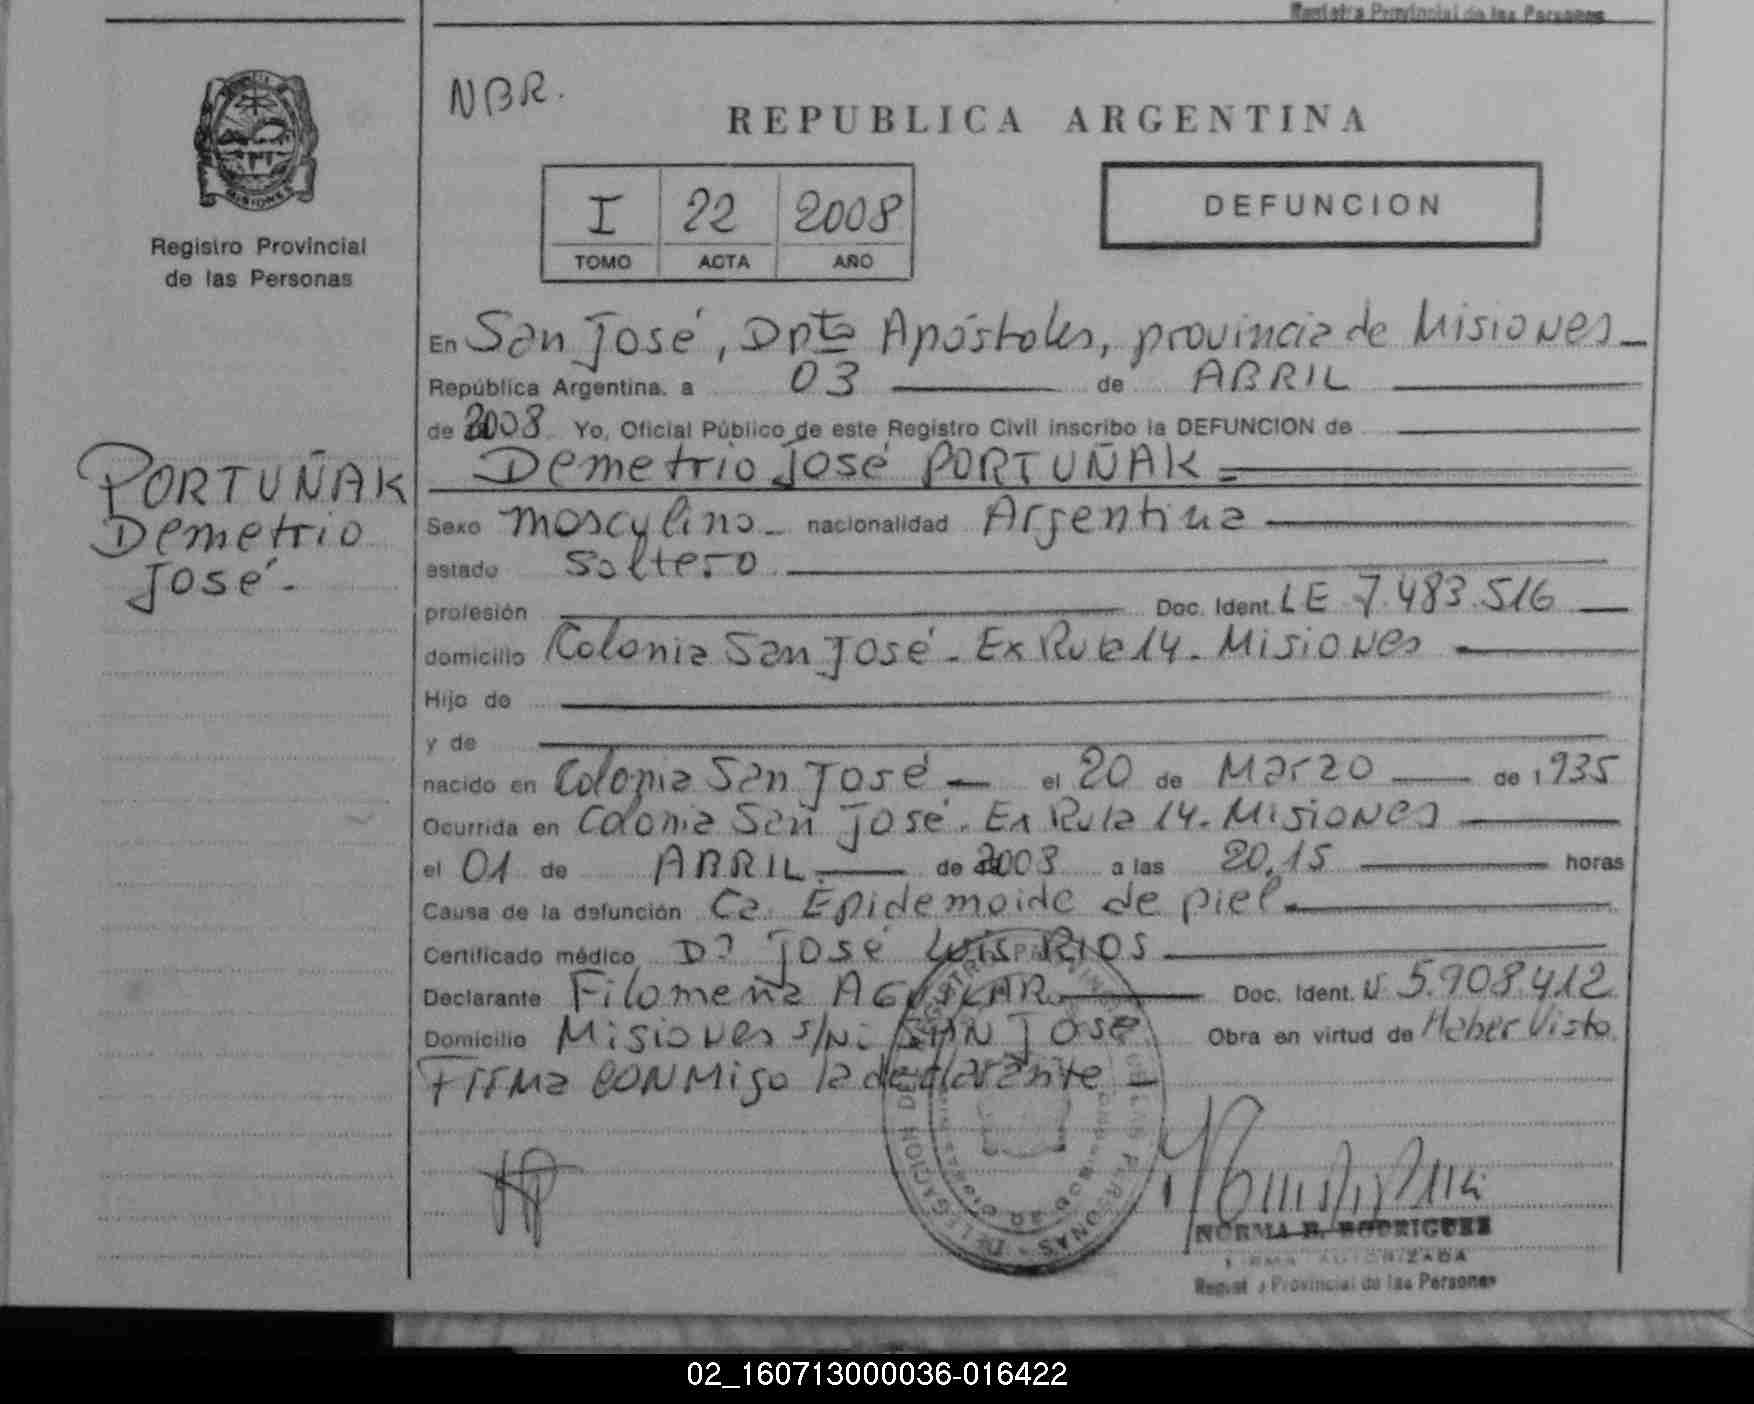 Registro Provincial de las Personas
MISIONES
Registro Provincial
de las Personas
NBR.
REPUBLICA ARGENTINA
I 22 2008
TOMO ACTA AÑO
DEFUNCION
PORTUÑAK
Demetrio
José.-
En San José, Dpto Apóstoles, provincia de Misiones
República Argentina, a 03 de ABRIL
de 2008 Yo, Oficial Público de este Registro Civil inscribo la DEFUNCION de
Demetrio José PORTUÑAK =
Sexo masculino nacionalidad Argentina
estado soltero
profesión Doc. Ident. LE 7.483.516
domicilio Colonia San José - Ex Ruta 14 - Misiones
Hijo de
y de
nacido en Colonia San José el 20 de Marzo de 1935
Ocurrida en Colonia San José. Ex Ruta 14 - Misiones
el 01 de ABRIL de 2008 a las 20,15 horas
Causa de la defunción Ca. Epidemoide de piel
Certificado médico Dr José Luis RIOS
Declarante Filomena AGUILAR Doc. Ident. Nº 5.908.412
Domicilio Misiones s/Nº SAN José Obra en virtud de Haber Visto
Firma CONMigo la declarante
DELEGACION DE LAS PERSONAS
NORMA B. RODRIGUEZ
FIRMA AUTORIZADA
Registro Provincial de las Personas
02_160713000036-016422